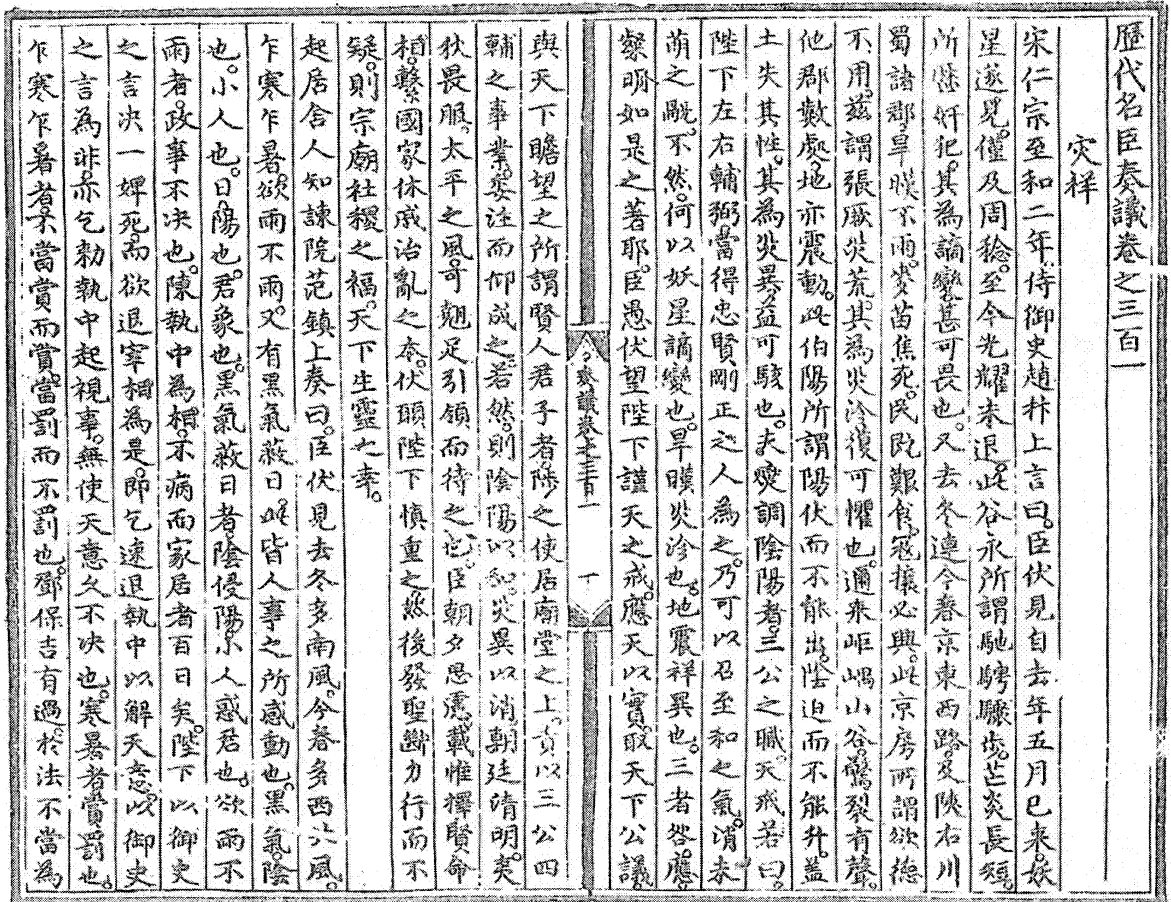 歷代名臣奏議卷之三百一
災祥
宋仁宗至和二年侍御史趙抃上言曰臣伏見自去年五月已來妖
星遂見僅及周稔至今光耀未退此谷永所謂馳騁驟步芒炎長短
所歷奸犯其為謫變甚可畏也又去冬連今春京東西路及陝右川
蜀諸郡旱暵不雨麥苗焦死民既艱食寇攘必興此京房所謂欲德
不用茲謂張厥災荒其為災沴復可懼也邇來岠嵎山谷驚裂有聲
他郡數處地亦震動此伯陽所謂陽伏而不能出陰迫而不能升蓋
土失其性其為災異益可駭也夫燮調陰陽者三公之職天戒若曰
陛下左右輔弼當得忠賢剛正之人為之乃可以召至和之氣消未
萌之眚不然何以妖星謫變也旱暵災沴也地震祥異也三者咎應
粲明如是之著耶臣愚伏望陛下謹天之戒應天以實取天下公議
奏議卷之三百一
與天下瞻望之所謂賢人君子者陟之使居廟堂之上責以三公四
輔之事業委注而仰成之若然則陰陽以和災異以消朝廷清明夷
狄畏服太平之風可翹足引領而待之也臣朝夕思慮載惟擇賢命
相繫國家休戚治亂之本伏願陛下慎重之然後發聖斷力行而不
疑則宗廟社稷之福天下生靈之幸
起居舍人知諫院范鎮上奏曰臣伏見去冬多南風今春多西北風
乍寒乍暑欲雨不雨又有黑氣蔽日此皆人事之所感動也黑氣陰
也小人也日陽也君象也黑氣蔽日者陰侵陽小人惑君也欲雨不
雨者政事不決也陳執中為相不病而家居者百日矣陛下以御史
之言決一婢死而欲退宰相為是即乞速退執中以解天意以御史
之言為非亦乞勑執中起視事無使天意久不決也寒暑者賞罰也
乍寒乍暑者不當賞而賞當罰而不罰也鄧保吉有過於法不當為